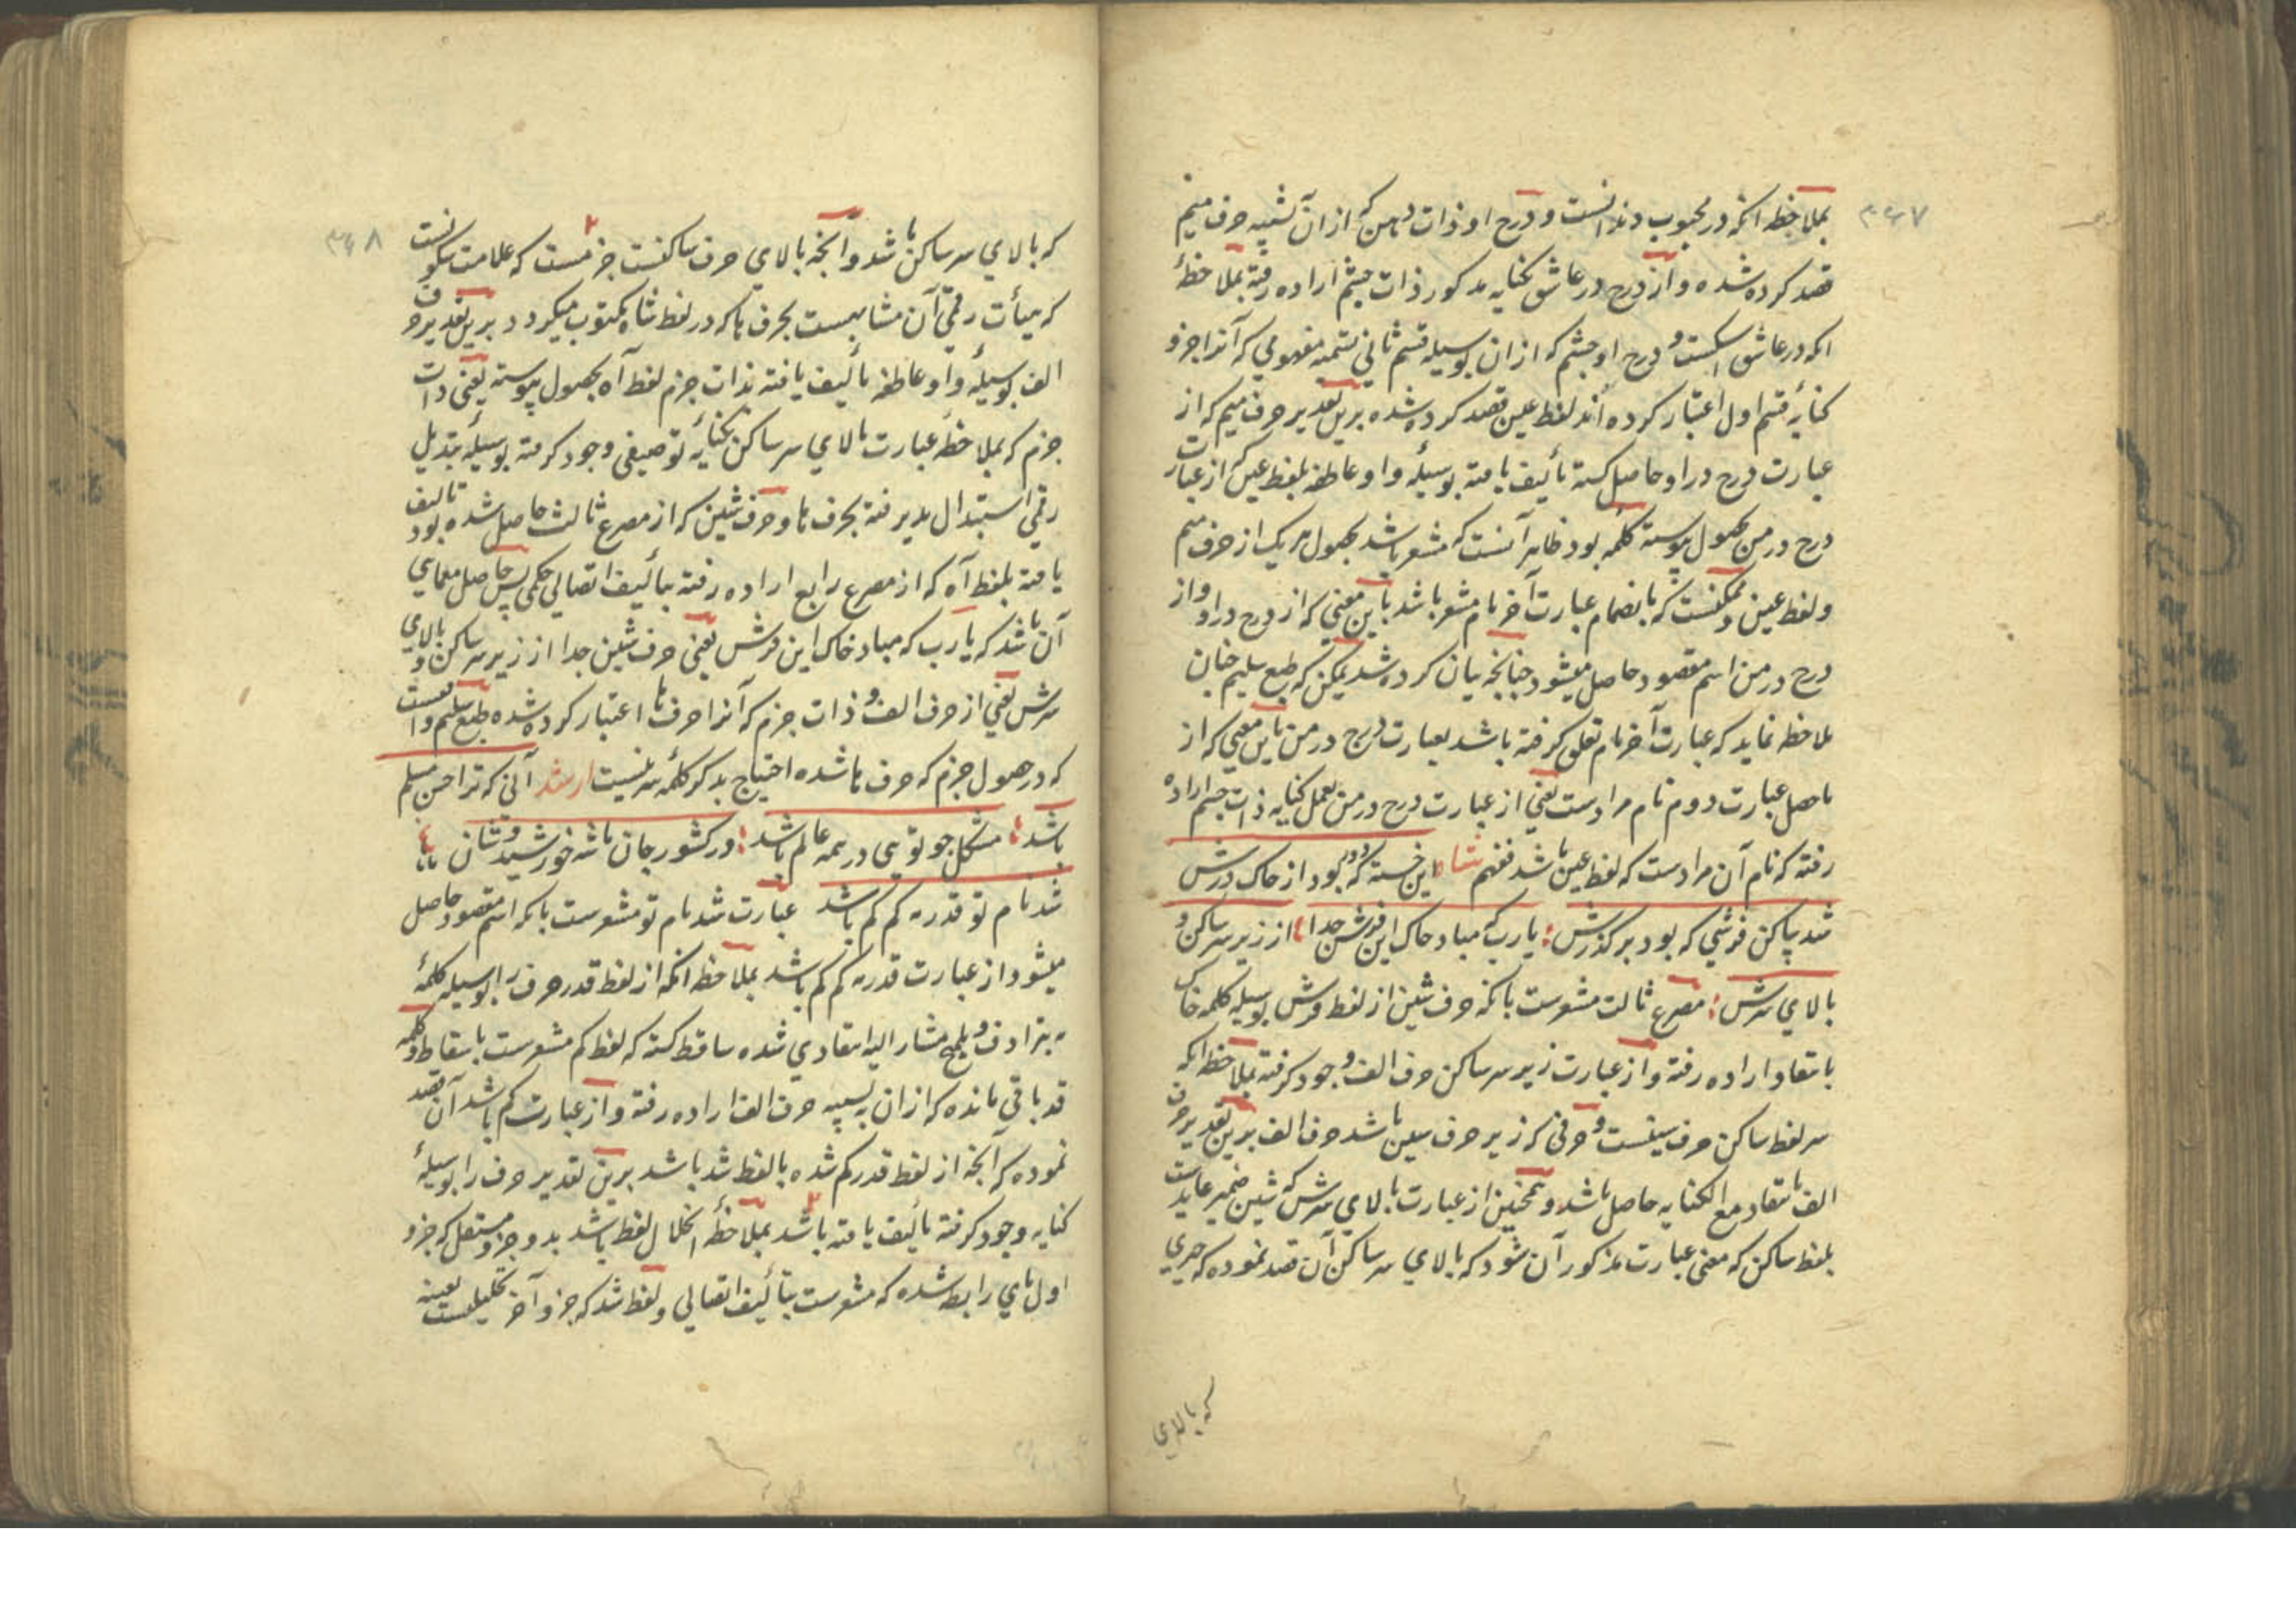 ۳۴۷
بملاحظه انکه در محبوب دندانست و درج او ذات دهن که ازان تشبیه حرف میم
قصد کرده شده و از درج در عاشق بکنایه مذکور ذات چشم اراده رفته بملاحظهٔ
انکه در عاشق اشکست و درج او چشم که ازان بوسیله قسم ثانی تتمه مفهومی که آنرا جزو
کنایهٔ قسم اول اعتبار کرده اند لفظ عین قصد کرده شده برین تقدیر حرف میم که از
عبارت درج در او حاصل کشته تألیف یافته بوسیلهٔ واو عاطفه بلفظ عین که از عبارت
درج در من بحصول پیوسته کلمه بود ظاهر آنست که مشعر باشد بحصول هر یک از حرف میم
ولفظ عین و ممکنست که بانضمام عبارت آخر نام مشعر باشد باین معنی که از درج در او و از
درج در من اسم مقصود حاصل میشود چنانچه بیان کرده شد یمکن که طبع سلیم چنان
ملاحظه نماید که عبارت آخر نام تعلق کرفته باشد بعبارت درج در من باین معنی که از
ماحصل عبارت دوم نام مرادست یعنی از عبارت درج در من بعمل کنایه ذات چشم اراده
رفته که نام آن مرادست که لفظ عین باشد فافهم شاه این خسته که دور بود از خاک درش
شد پاکن فرشی که بود بر کذرش : یارب که مباد خاک این فرش جدا : از زیر سر ساکن و
بالای سرش : مصرع ثالث مشعرست بانکه حرف شین از لفظ فرش بوسیله کلمه خاک
بانتقاد اراده رفته و از عبارت زیر سر ساکن حرف الف وجود کرفته بملاحظه انکه
سر لفظ ساکن حرف سینست و حرفی که زیر حرف سین باشد حرف الف برین تقدیر حرف
الف بانتقاد مع الکنایه حاصل باشد و همچنین از عبارت بالای سرش که شین ضمیر عایدست
بلفظ ساکن که معنی عبارت مذکور آن شود که بالای سر ساکن آن قصد نموده که چیزی
که بالای
۳۴۸
که بالای سر ساکن باشد و آنچه بالای حرف ساکنست جزمست که علامت سکونست
که هیأت رقمی آن مشابهست بحرف ها که در لفظ شاه مکتوب میکردد برین تقدیر حرف
الف بوسیلهٔ واو عاطفه تألیف یافته بذات جزم لفظ آه بحصول پیوسته یعنی ذات
جزم که بملاحظهٔ عبارت بالای سر ساکن بکنایهٔ توصیفی وجود کرفته بوسیلهٔ تبدیل
رقمی استبدال پذیرفته بحرف ها و حرف شین که از مصرع ثالث حاصل شده بود تالیف
یافته بلفظ آه که از مصرع رابع اراده رفته بتألیف اتصالی حکمی پس حاصل معمای
آن باشد که یارب که مباد خاک این فرش یعنی حرف شین جدا از زیر سر ساکن و بالای
سرش یعنی از حرف الف و ذات جزم که آنرا حرف ها اعتبار کرده شده طبع سلیم را
که در حصول جزم که حرف ها شده احتیاج بذکر کلمهٔ سر نیست ارشد آنی که ترا حسن مسلم
باشد : مشکل چو تویی در همه عالم باشد : در کشور جان با شه خورشید نشان :
شد نام تو قدر مه کم کم باشد عبارت شد نام تو مشعرست بانکه اسم مقصود حاصل
میشود از عبارت قدر مه کم کم باشد بملاحظه انکه از لفظ قدر حرف را بوسیله کلمهٔ
مه بترادف و تلمیح مشار الیه انتقادی شده ساقط کشته که لفظ کم مشعرست باسقاط و کلمه
قد باقی مانده که ازان بتشبیه حرف الف اراده رفته و از عبارت کم باشد آن قصد
نموده که آنچه از لفظ قدر کم شده بالفظ شد باشد برین تقدیر حرف را بوسیلهٔ
کنایه وجود کرفته تألیف یافته باشد بملاحظهٔ انحلال لفظ باشد بدو جزو مستقل که جزو
اول بای رابطه شده که مشعرست بتألیف اتصالی و لفظ شد که جزو آخر تحلیلست بعینه